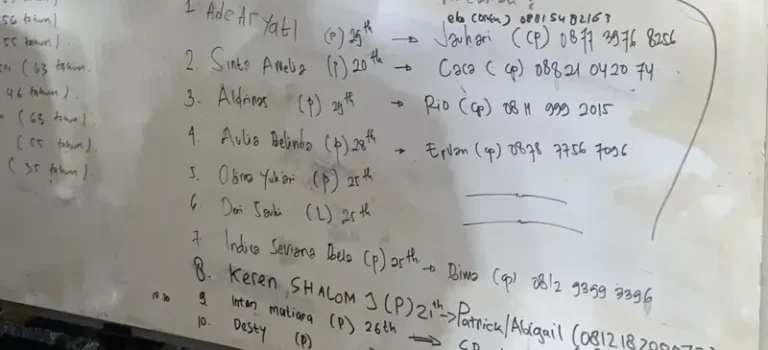 56 tahun)
55 tahun)
(63 tahun
46 tahun)
(63 tahun)
(55 tahun)
(35 tahun)
08815482163
1. Ade Aryati (P) 29th → Jauhari (CP) 0877 3976 8256
2. Sinta Amelia (P) 20th → Caca (CP) 08821 0420 74
3. (P) 29th → Rio (CP) 0811 999 2015
4. Aulia Belinda (P) 28th → Ervan (CP) 0878 7756 7096
5. Yukari (P) 25th
6. (L) 25th
7. Indica Seviana Bela (P) 25th → Bima (CP) 0812 9359 3396
8. Keren SHALOM J (P) 21th → Patrick/Abigail
9. Intan mutiara (P) 26th
10. Desty (P) → CP